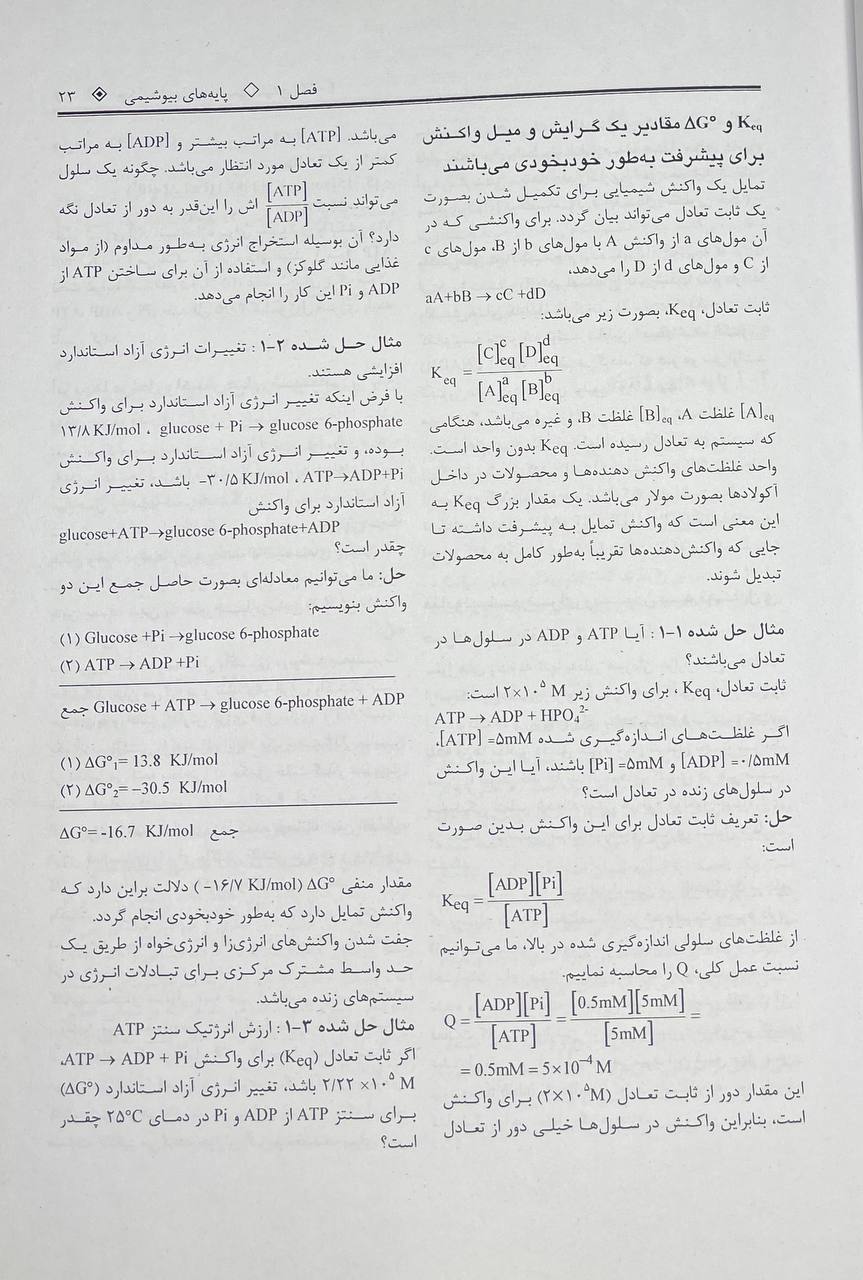 فصل ۱ ◇ پایه‌های بیوشیمی ◈ ۲۳
Keq و ΔG° مقادیر یک گرایش و میل واکنش
برای پیشرفت به‌طور خودبخودی می‌باشند
تمایل یک واکنش شیمیایی برای تکمیل شدن بصورت
یک ثابت تعادل می‌تواند بیان گردد. برای واکنشی که در
آن مول‌های a از واکنش A با مول‌های b از B، مول‌های c
از C و مول‌های d از D را می‌دهد،
aA+bB → cC +dD
ثابت تعادل، Keq، بصورت زیر می‌باشد:
Keq = [C]^c_eq [D]^d_eq / [A]^a_eq [B]^b_eq
[A]eq غلظت A، [B]eq غلظت B، و غیره می‌باشد، هنگامی
که سیستم به تعادل رسیده است. Keq بدون واحد است.
واحد غلظت‌های واکنش دهنده‌ها و محصولات در داخل
آکولادها بصورت مولار می‌باشد. یک مقدار بزرگ Keq به
این معنی است که واکنش تمایل به پیشرفت داشته تا
جایی که واکنش‌دهنده‌ها تقریباً به‌طور کامل به محصولات
تبدیل شوند.
مثال حل شده ۱-۱ : آیا ATP و ADP در سلول‌ها در
تعادل می‌باشند؟
ثابت تعادل، Keq ، برای واکنش زیر ۲×۱۰^۵ M است:
ATP → ADP + HPO₄²⁻
اگر غلظت‌های اندازه‌گیری شده [ATP] =۵mM،
[ADP] =۰/۵mM و [Pi] =۵mM باشند، آیا این واکنش
در سلول‌های زنده در تعادل است؟
حل: تعریف ثابت تعادل برای این واکنش بدین صورت
است:
Keq = [ADP][Pi] / [ATP]
از غلظت‌های سلولی اندازه‌گیری شده در بالا، ما می‌توانیم
نسبت عمل کلی، Q را محاسبه نماییم.
Q = [ADP][Pi] / [ATP] = [0.5mM][5mM] / [5mM] =
= 0.5mM = 5×10⁻⁴ M
این مقدار دور از ثابت تعادل (۲×۱۰^۵M) برای واکنش
است، بنابراین واکنش در سلول‌ها خیلی دور از تعادل
می‌باشد. [ATP] به مراتب بیشتر و [ADP] به مراتب
کمتر از یک تعادل مورد انتظار می‌باشد. چگونه یک سلول
می‌تواند نسبت [ATP] / [ADP] اش را این‌قدر به دور از تعادل نگه
دارد؟ آن بوسیله استخراج انرژی به‌طور مداوم (از مواد
غذایی مانند گلوکز) و استفاده از آن برای ساختن ATP از
ADP و Pi این کار را انجام می‌دهد.
مثال حل شده ۲-۱ : تغییرات انرژی آزاد استاندارد
افزایشی هستند.
با فرض اینکه تغییر انرژی آزاد استاندارد برای واکنش
glucose + Pi → glucose 6-phosphate ، ۱۳/۸ KJ/mol
بوده، و تغییر انرژی آزاد استاندارد برای واکنش
ATP→ADP+Pi ، -۳۰/۵ KJ/mol باشد، تغییر انرژی
آزاد استاندارد برای واکنش
glucose+ATP→glucose 6-phosphate+ADP
چقدر است؟
حل: ما می‌توانیم معادله‌ای بصورت حاصل جمع این دو
واکنش بنویسیم:
(۱) Glucose +Pi →glucose 6-phosphate
(۲) ATP → ADP +Pi
جمع Glucose + ATP → glucose 6-phosphate + ADP
(۱) ΔG°₁= 13.8 KJ/mol
(۲) ΔG°₂= –30.5 KJ/mol
ΔG°= -16.7 KJ/mol جمع
مقدار منفی ΔG° (-۱۶/۷ KJ/mol) دلالت براین دارد که
واکنش تمایل دارد که به‌طور خودبخودی انجام گردد.
جفت شدن واکنش‌های انرژی‌زا و انرژی‌خواه از طریق یک
حد واسط مشترک مرکزی برای تبادلات انرژی در
سیستم‌های زنده می‌باشد.
مثال حل شده ۳-۱ : ارزش انرژتیک سنتز ATP
اگر ثابت تعادل (Keq) برای واکنش ATP → ADP + Pi،
۲/۲۲ ×۱۰^۵ M باشد، تغییر انرژی آزاد استاندارد (ΔG°)
برای سنتز ATP از ADP و Pi در دمای ۲۵°C چقدر
است؟